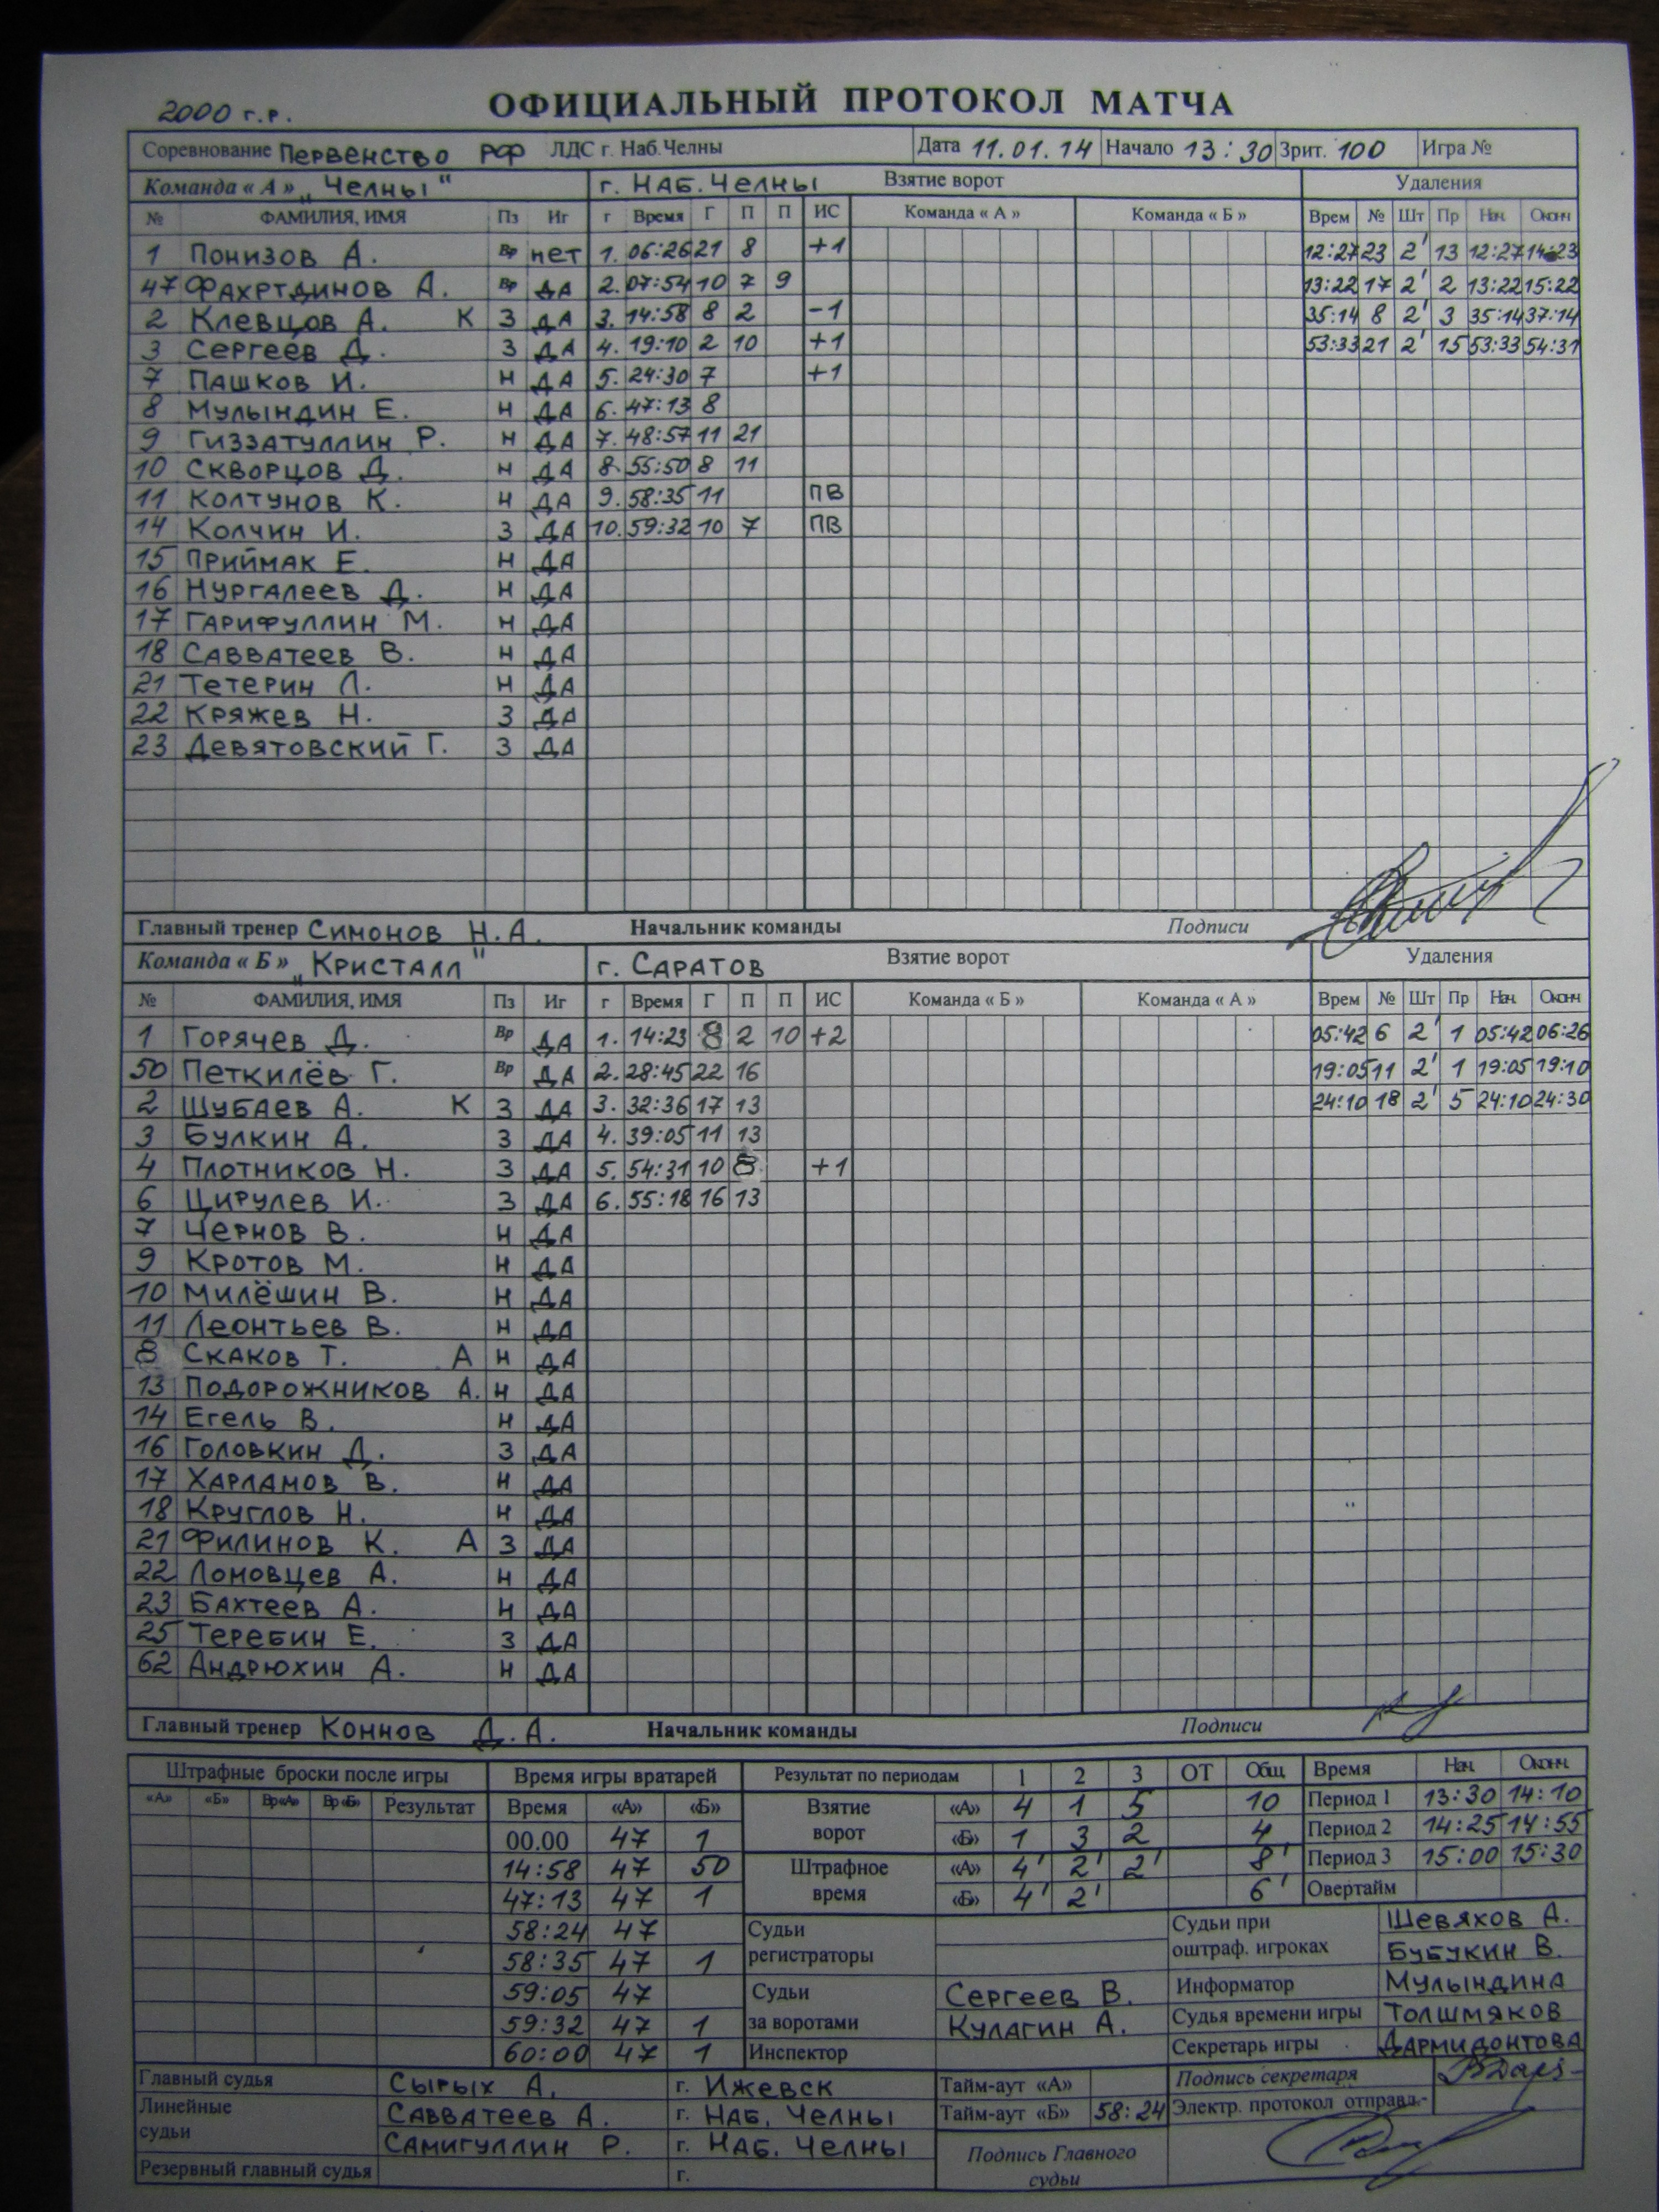 2000 г.р. ОФИЦИАЛЬНЫЙ ПРОТОКОЛ МАТЧА
Соревнование Первенство РФ ЛДС г. Наб.Челны Дата 11.01.14 Начало 13:30 Зрит. 100 Игра №
Команда « А » „Челны" г. Наб. Челны Взятие ворот Удаления
№ ФАМИЛИЯ, ИМЯ Пз Иг г Время Г П П ИС Команда « А » Команда « Б » Врем № Шт Пр Нач. Оконч
1 Понизов А. Вр нет 1. 06:26 21 8 +1 12:27 23 2' 13 12:27 14:23
47 Фахртдинов А. Вр ДА 2. 07:54 10 7 9 13:22 17 2' 2 13:22 15:22
2 Клевцов А. К З ДА 3. 14:58 8 2 -1 35:14 8 2' 3 35:14 37:14
3 Сергеев Д. З ДА 4. 19:10 2 10 +1 53:33 21 2' 15 53:33 54:31
7 Пашков И. Н ДА 5. 24:30 7 +1
8 Мулындин Е. Н ДА 6. 47:13 8
9 Гиззатуллин Р. Н ДА 7. 48:57 11 21
10 Скворцов Д. Н ДА 8. 55:50 8 11
11 Колтунов К. Н ДА 9. 58:35 11 ПВ
14 Колчин И. З ДА 10. 59:32 10 7 ПВ
15 Приймак Е. Н ДА
16 Нургалеев Д. Н ДА
17 Гарифуллин М. Н ДА
18 Савватеев В. Н ДА
21 Тетерин Л. Н ДА
22 Кряжев Н. З ДА
23 Девятовский Г. З ДА
Главный тренер Симонов Н.А. Начальник команды Подписи
Команда « Б » „Кристалл" г. Саратов Взятие ворот Удаления
№ ФАМИЛИЯ, ИМЯ Пз Иг г Время Г П П ИС Команда « Б » Команда « А » Врем № Шт Пр Нач. Оконч
1 Горячев Д. Вр ДА 1. 14:23 8 2 10 +2 05:42 6 2' 1 05:42 06:26
50 Петкилёв Г. Вр ДА 2. 28:45 22 16 19:05 11 2' 1 19:05 19:10
2 Шубаев А. К З ДА 3. 32:36 17 13 24:10 18 2' 5 24:10 24:30
3 Булкин А. З ДА 4. 39:05 11 13
4 Плотников Н. З ДА 5. 54:31 10 8 +1
6 Цирулев И. З ДА 6. 55:18 16 13
7 Чернов В. Н ДА
9 Кротов М. Н ДА
10 Милёшин В. Н ДА
11 Леонтьев В. Н ДА
8 Скаков Т. А Н ДА
13 Подорожников А. Н ДА
14 Егель В. Н ДА
16 Головкин Д. З ДА
17 Харламов В. Н ДА
18 Круглов Н. Н ДА
21 Филинов К. А З ДА
22 Ломовцев А. Н ДА
23 Бахтеев А. Н ДА
25 Теребин Е. З ДА
62 Андрюхин А. Н ДА
Главный тренер Коннов Д.А. Начальник команды Подписи
Штрафные броски после игры Время игры вратарей Результат по периодам 1 2 3 ОТ Общ. Время Нач. Оконч.
«А» «Б» Вр «А» Вр «Б» Результат Время «А» «Б» Взятие ворот «А» 4 1 5 10 Период 1 13:30 14:10
00.00 47 1 «Б» 1 3 2 4 Период 2 14:25 14:55
14:58 47 50 Штрафное время «А» 4' 2' 2' 8' Период 3 15:00 15:30
47:13 47 1 «Б» 4' 2' 6' Овертайм
58:24 47 Судьи регистраторы Судьи при оштраф. игроках Шевяхов А.
58:35 47 1 Бубукин В.
59:05 47 Судьи за воротами Сергеев В. Информатор Мулындина
59:32 47 1 Кулагин А. Судья времени игры Толшмяков
60:00 47 1 Инспектор Секретарь игры Дармидонтова
Главный судья Сырых А. г. Ижевск Тайм-аут «А» Подпись секретаря
Линейные судьи Савватеев А. г. Наб. Челны Тайм-аут «Б» 58:24 Электр. протокол отправл.-
Самигуллин Р. г. Наб. Челны Подпись Главного судьи
Резервный главный судья г.